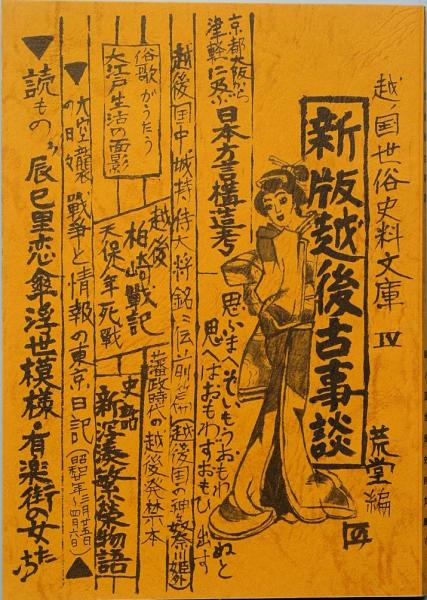 越ノ国世俗史料文庫 Ⅳ
荒堂編
新版越後古事談
Ⅳ
京都大阪から
津軽に及ぶ
日本方言構造考
思ふまへそいもうおもわぬと
思へはおもわすおもひ出す
越後国中城持侍大将銘々伝
越後国の神
藩政時代の越後発禁本
俗歌がうたう
大江戸生活の面影
越後
柏崎戰記
天保年死戰
史話
新潟湊繁榮物語
▼大空襲
の日録
戰争と情報の東京日記
▲
▼読もの〝辰巳里恋傘浮世模様・有楽街の女たち